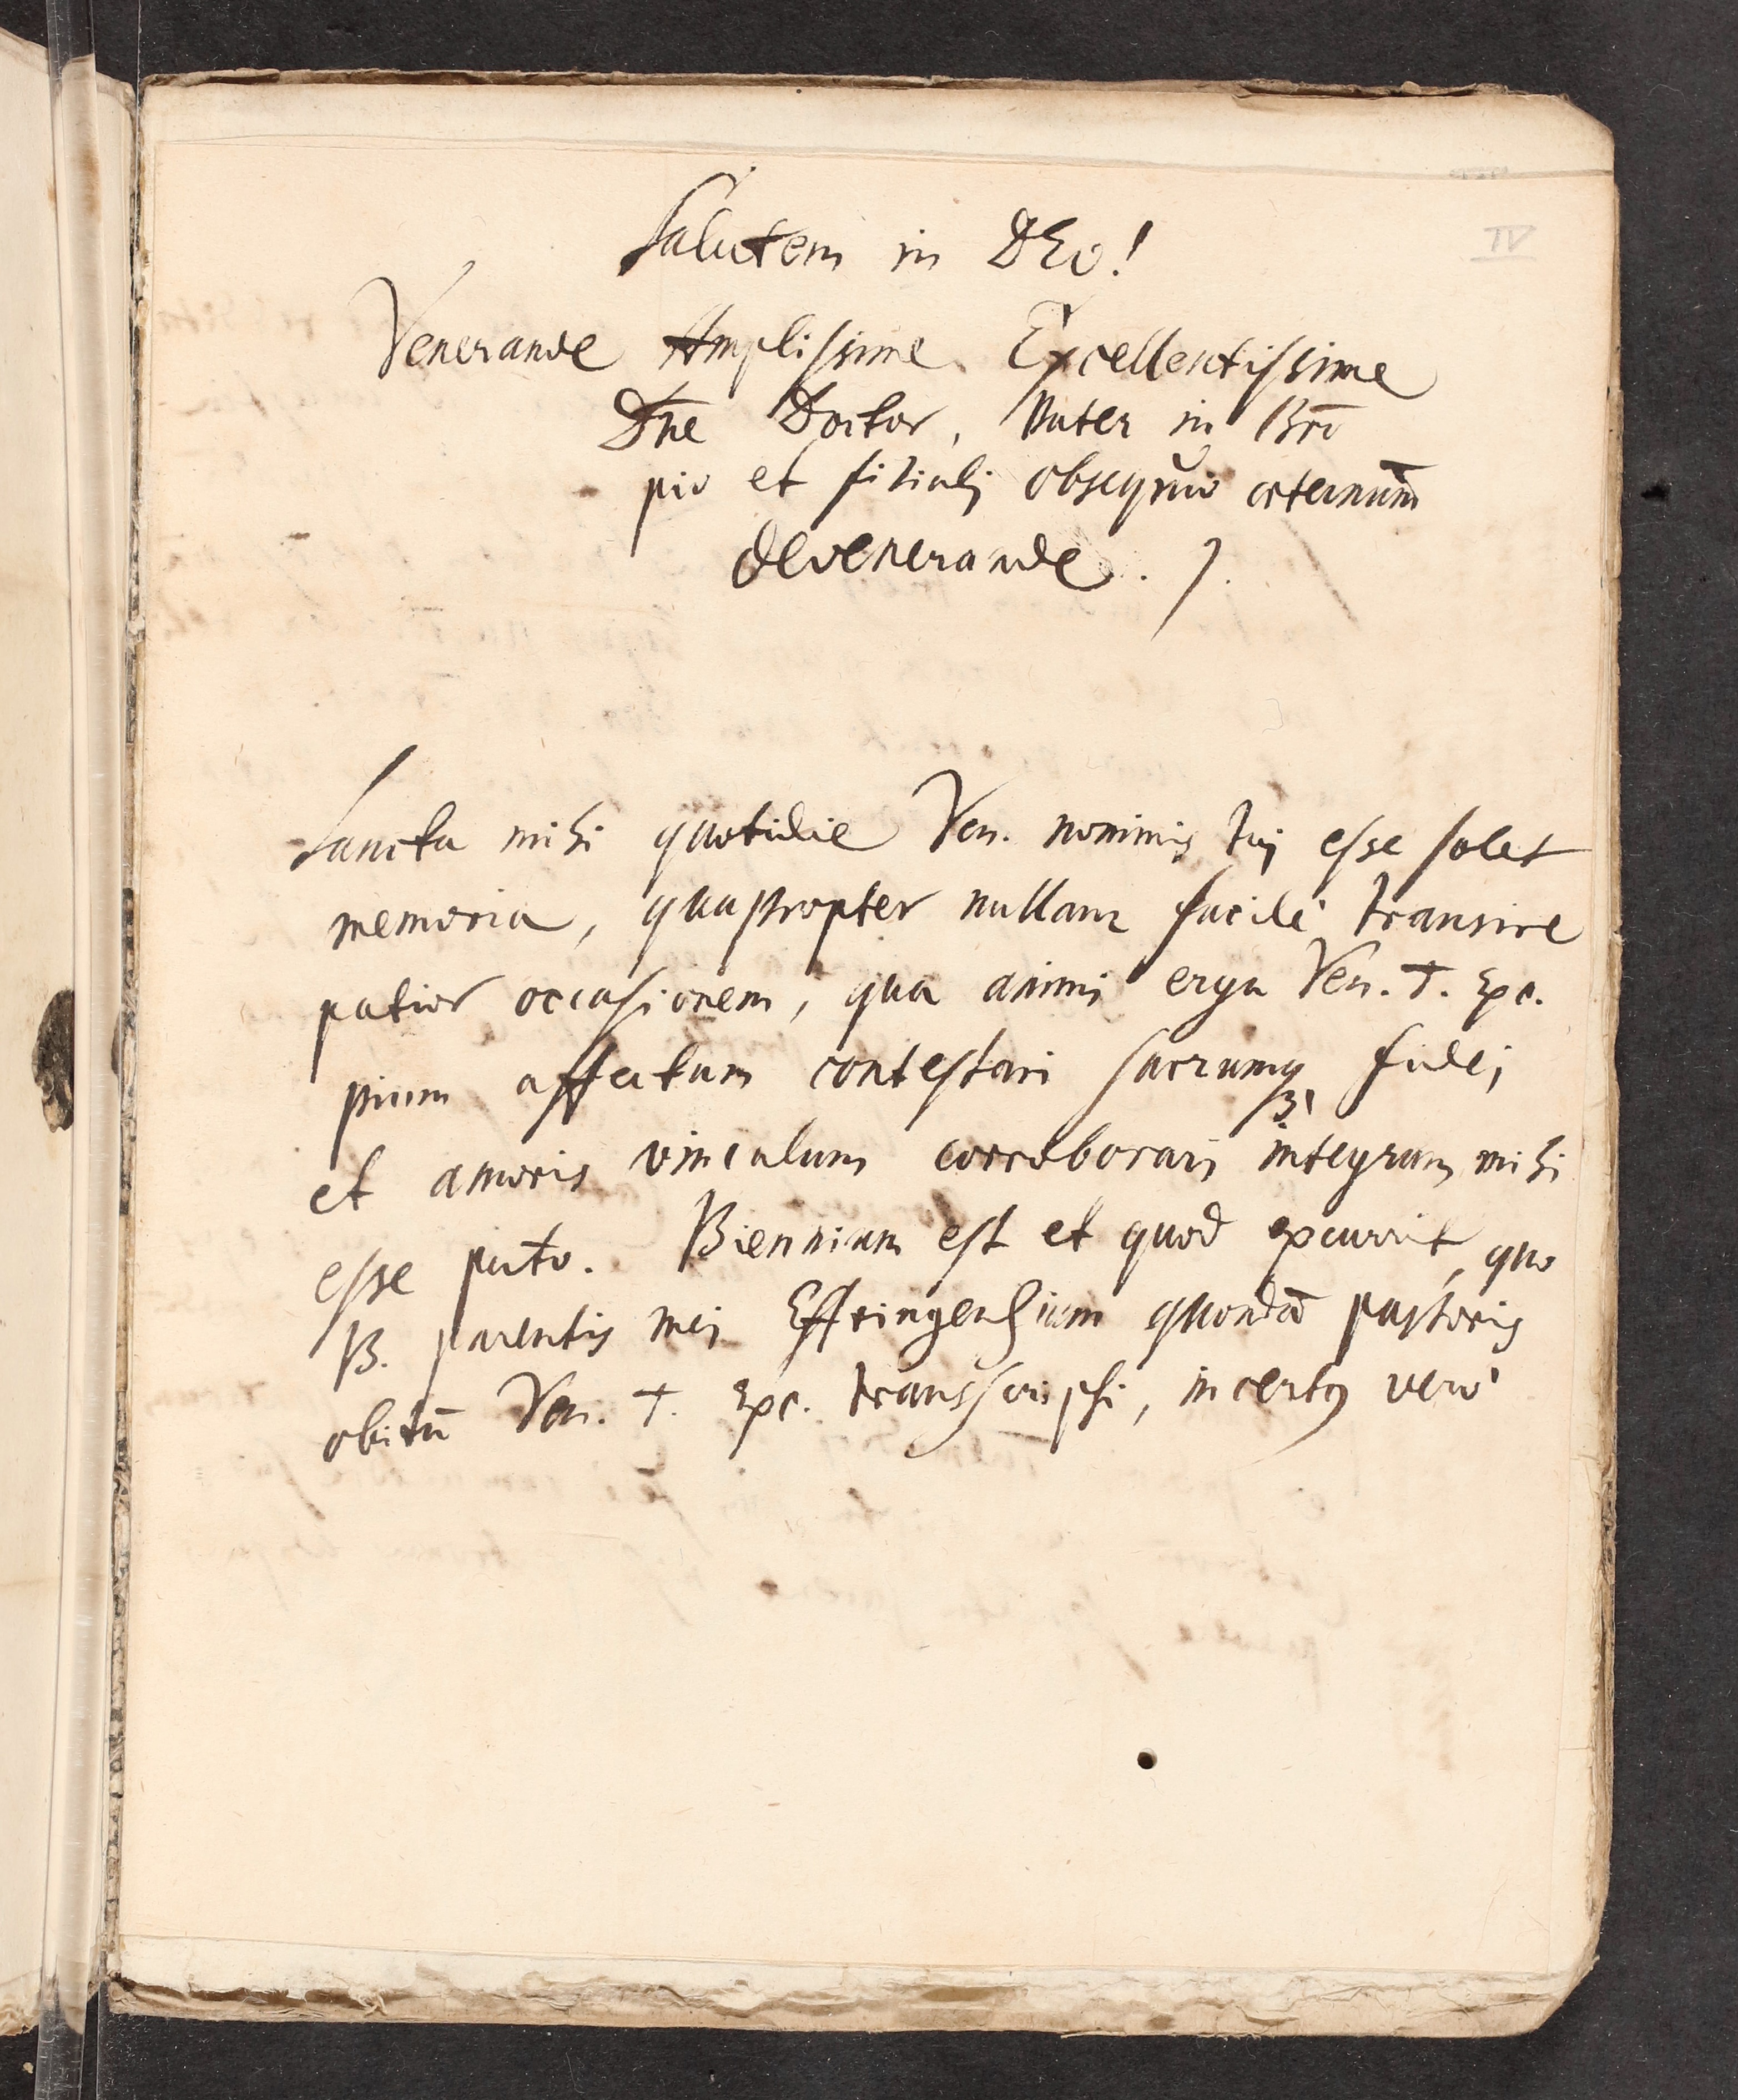 IV
Salutem in DEo!
Venerande Amplissime Excellentissime
Dn̄e Doctor, Pater in
pio et filialj obsequio æternum̄
devenerande.
Sancta mihi quotidie Ven. nominis tuj esse solet
memoria, quapropter nullam facilè transire
patior occasionem, qua animi erga Ven. T. Exc.
pium affectum contestari sacrumq fidej
et amoris vinculum corroborari integrum mihi
esse puto. Biennium est et quod excurrit, quo
B. parentis mej Effringensium quondā pastoris
obitū Ven. T. Exc. transscripsi, incertus verò